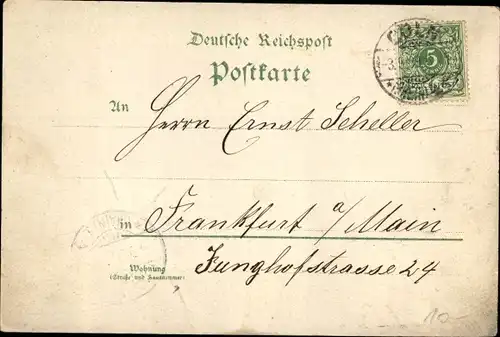 Deutsche Reichspost
Postkarte
CÖLN
5
An
Herrn Ernst Scheller
in Frankfurt a/Main
Wohnung
(Straße und Hausnummer)
Junghofstrasse 24
10-